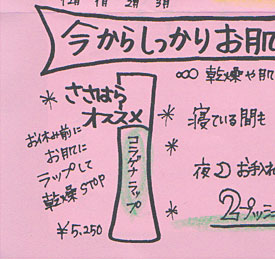 12月 1月 2月 3月
今からしっかりお肌
乾燥や肌
ささはら
オススメ
寝ている間も
お休み前に
お肌に
ラップして
乾燥STOP
¥5,250
コラゲナラップ
夜 お手入れ
2プッシ